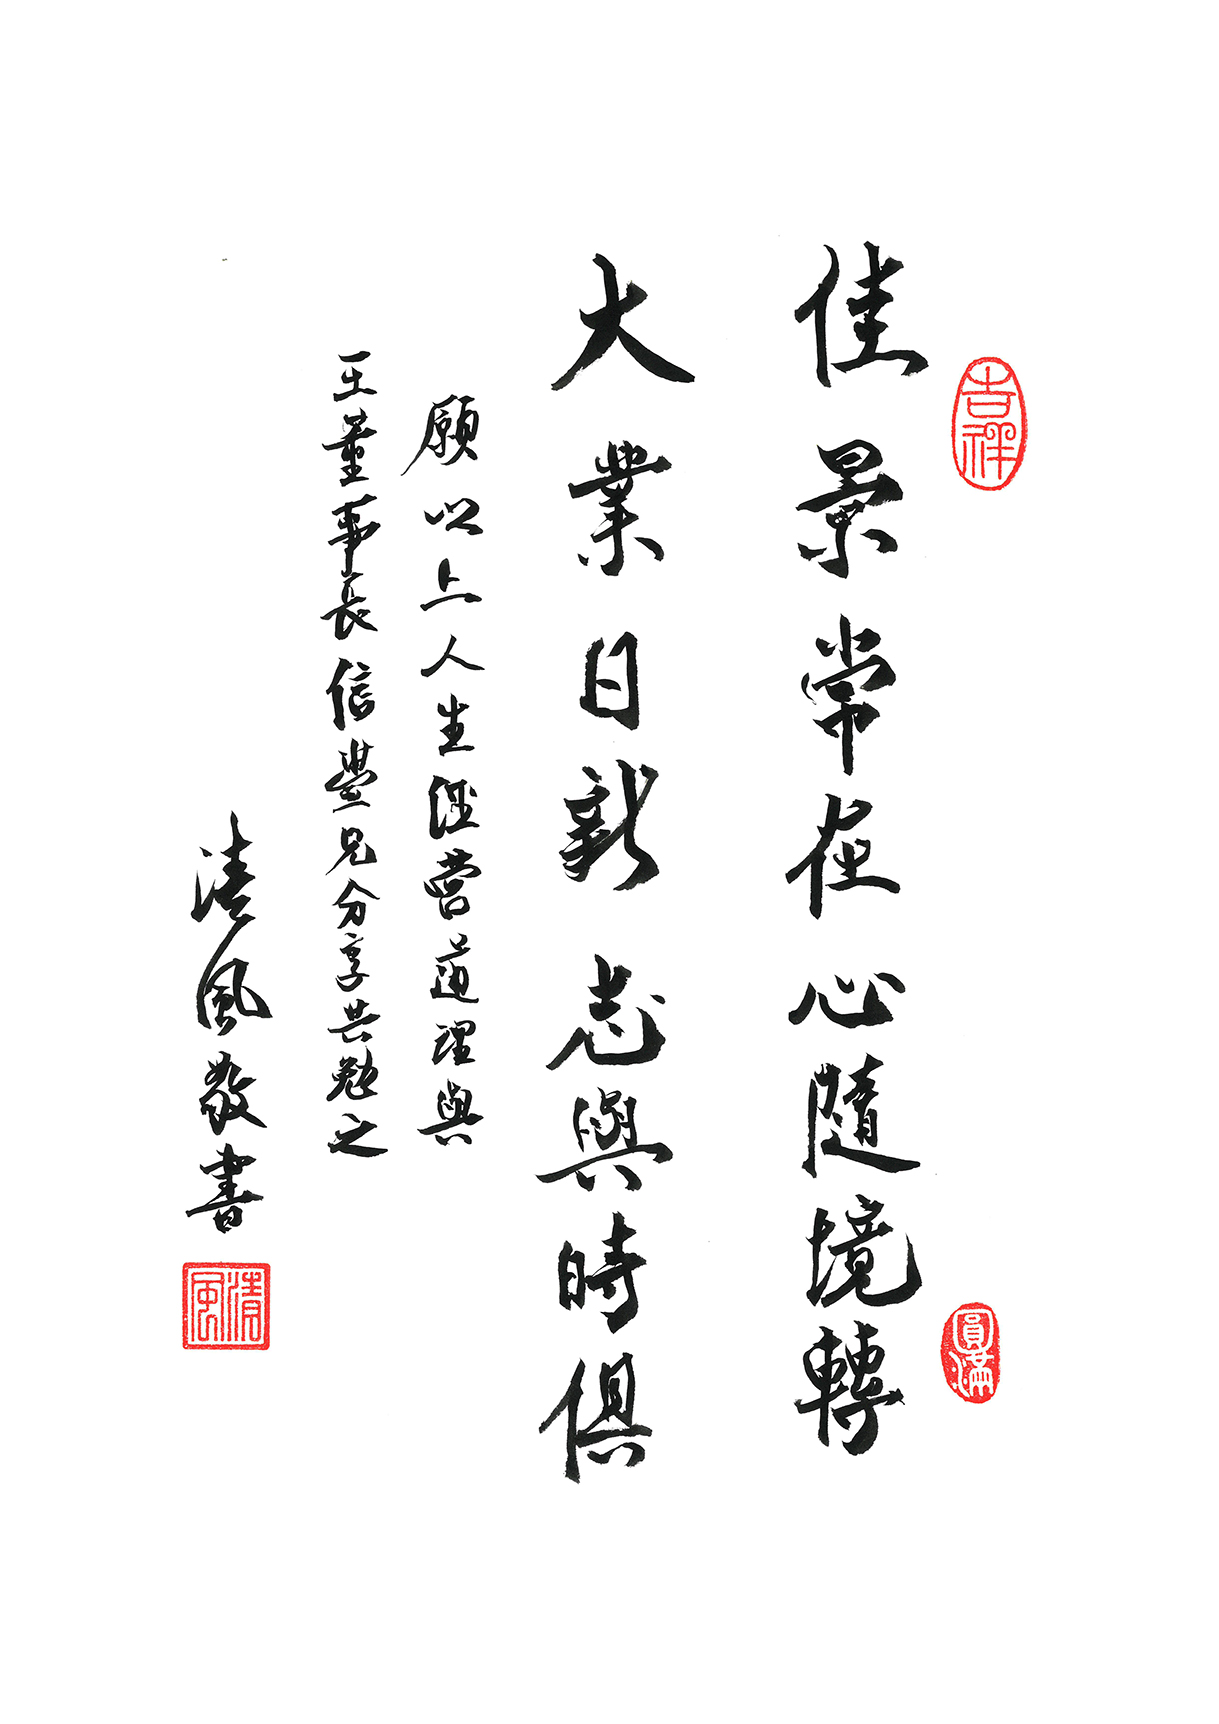 吉祥
佳景常在心隨境轉
圓滿
大業日新志與時俱
願以上人生經營道理與
王董事長信豐兄分享共勉之
清風敬書
清風